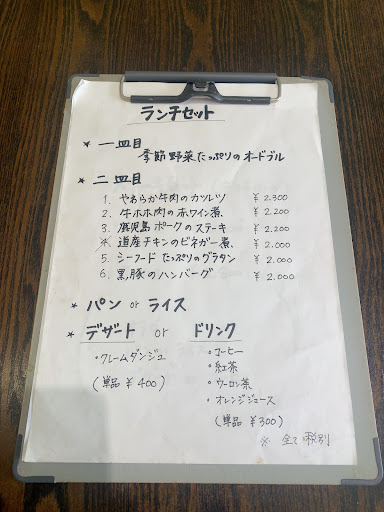 ランチセット
★ 一皿目
季節野菜たっぷりのオードブル
★ 二皿目
1. やわらか牛肉のカツレツ ¥2.300
2. 牛ホホ肉の赤ワイン煮 ¥2.200
3. 鹿児島ポークのステーキ ¥2.200
4. 道産チキンのビネガー煮 ¥2.000
5. シーフードたっぷりのグラタン ¥2.000
6. 黒豚のハンバーグ ¥2.000
★ パン or ライス
★ デザート or ドリンク
・クレームダンジュ
(単品 ¥400)
・コーヒー
・紅茶
・ウーロン茶
・オレンジジュース
(単品 ¥300)
※ 全て税別